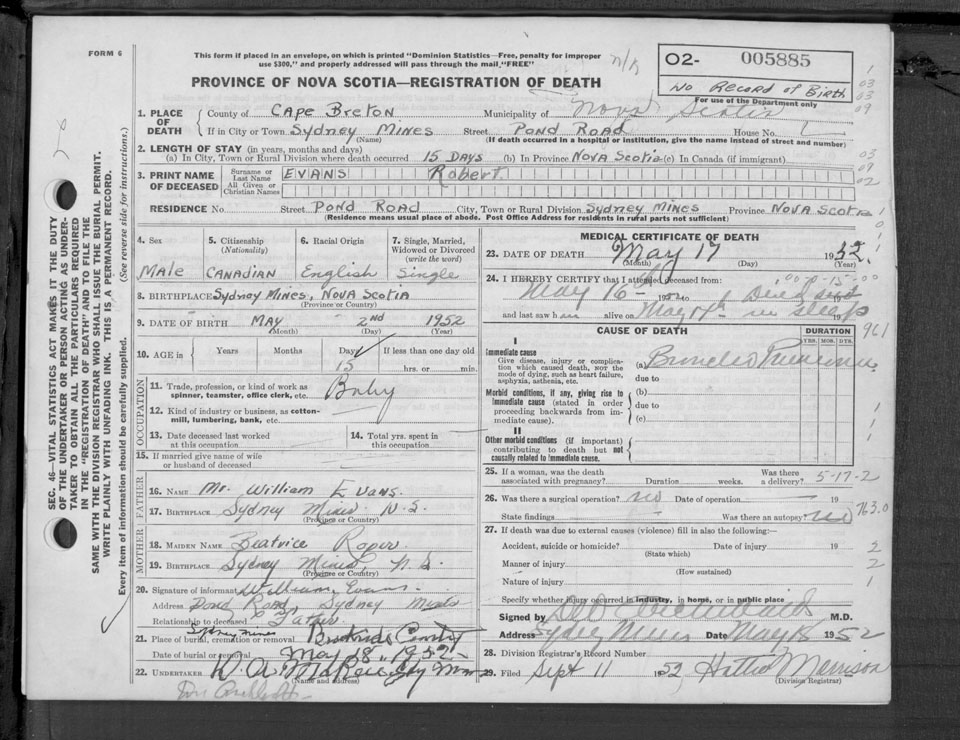 FORM 6
This form if placed in an envelope, on which is printed "Dominion Statistics—Free, penalty for improper
use $300," and properly addressed will pass through the mail "FREE"
n/r
PROVINCE OF NOVA SCOTIA—REGISTRATION OF DEATH
02- 005885
No Record of Birth
For use of the Department only
SEC. 46—VITAL STATISTICS ACT MAKES IT THE DUTY
OF THE UNDERTAKER OR PERSON ACTING AS UNDER-
TAKER TO OBTAIN ALL THE PARTICULARS REQUIRED
IN THE "REGISTRATION OF DEATH" AND TO FILE THE
SAME WITH THE DIVISION REGISTRAR WHO SHALL ISSUE THE BURIAL PERMIT.
WRITE PLAINLY WITH UNFADING INK. THIS IS A PERMANENT RECORD.
Every item of information should be carefully supplied. (See reverse side for instructions.)
1. PLACE OF DEATH County of Cape Breton Municipality of Nova Scotia
If in City or Town Sydney Mines Street Pond Road House No.
(Name) (If death occurred in a hospital or institution, give the name instead of street and number)
2. LENGTH OF STAY (in years, months and days)
(a) In City, Town or Rural Division where death occurred 15 Days (b) In Province Nova Scotia (c) In Canada (if immigrant)
3. PRINT NAME OF DECEASED Surname or Last Name EVANS Robert
All Given or Christian Names
RESIDENCE No. Street Pond Road City, Town or Rural Division Sydney Mines Province Nova Scotia
(Residence means usual place of abode. Post Office Address for residents in rural parts not sufficient)
4. Sex 5. Citizenship (Nationality) 6. Racial Origin 7. Single, Married, Widowed or Divorced (write the word)
Male Canadian English Single
8. BIRTHPLACE Sydney Mines, Nova Scotia
(Province or Country)
9. DATE OF BIRTH May 2nd 1952
(Month) (Day) (Year)
10. AGE in Years Months Days If less than one day old
15 hrs. or min.
OCCUPATION
11. Trade, profession, or kind of work as
spinner, teamster, office clerk, etc. Baby
12. Kind of industry or business, as cotton-
mill, lumbering, bank, etc.
13. Date deceased last worked at this occupation 14. Total yrs. spent in this occupation
15. If married give name of wife
or husband of deceased
FATHER
16. NAME Mr. William Evans.
17. BIRTHPLACE Sydney Mines N.S.
(Province or Country)
MOTHER
18. MAIDEN NAME Beatrice
19. BIRTHPLACE Sydney Mines, N.S.
(Province or Country)
20. Signature of informant William Evans
Address Pond Road, Sydney Mines
Relationship to deceased Father
Sydney Mines
21. Place of burial, cremation or removal
Date of burial or removal May 18, 1952
22. UNDERTAKER
(Name and address)
MEDICAL CERTIFICATE OF DEATH
23. DATE OF DEATH May 17 1952.
(Month) (Day) (Year)
00-00-15-00
24. I HEREBY CERTIFY that I attended deceased from:
May 16 - 1952 to
and last saw h alive on May 19 in sleep
CAUSE OF DEATH DURATION
YRS. MOS. DYS.
I
Immediate cause
Give disease, injury or complication which caused death, NOT the mode of dying, such as heart failure, asphyxia, asthenia, etc.
(a)
due to
Morbid conditions, if any, giving rise to immediate cause (stated in order proceeding backwards from immediate cause).
(b)
due to
(c)
II
Other morbid conditions (if important) contributing to death but not causally related to immediate cause.
25. If a woman, was the death associated with pregnancy? Duration weeks. Was there a delivery? 5-17-2
26. Was there a surgical operation? no Date of operation 19
State findings Was there an autopsy? no
763.0
27. If death was due to external causes (violence) fill in also the following:—
Accident, suicide or homicide? Date of injury 19
(State which)
Manner of injury
(How sustained)
Nature of injury
Specify whether injury occurred in industry, in home, or in public place
Signed by M.D.
Address Sydney Mines Date May 18 1952
28. Division Registrar's Record Number
29. Filed Sept 11 1952 Hattie Morrison
(Division Registrar)